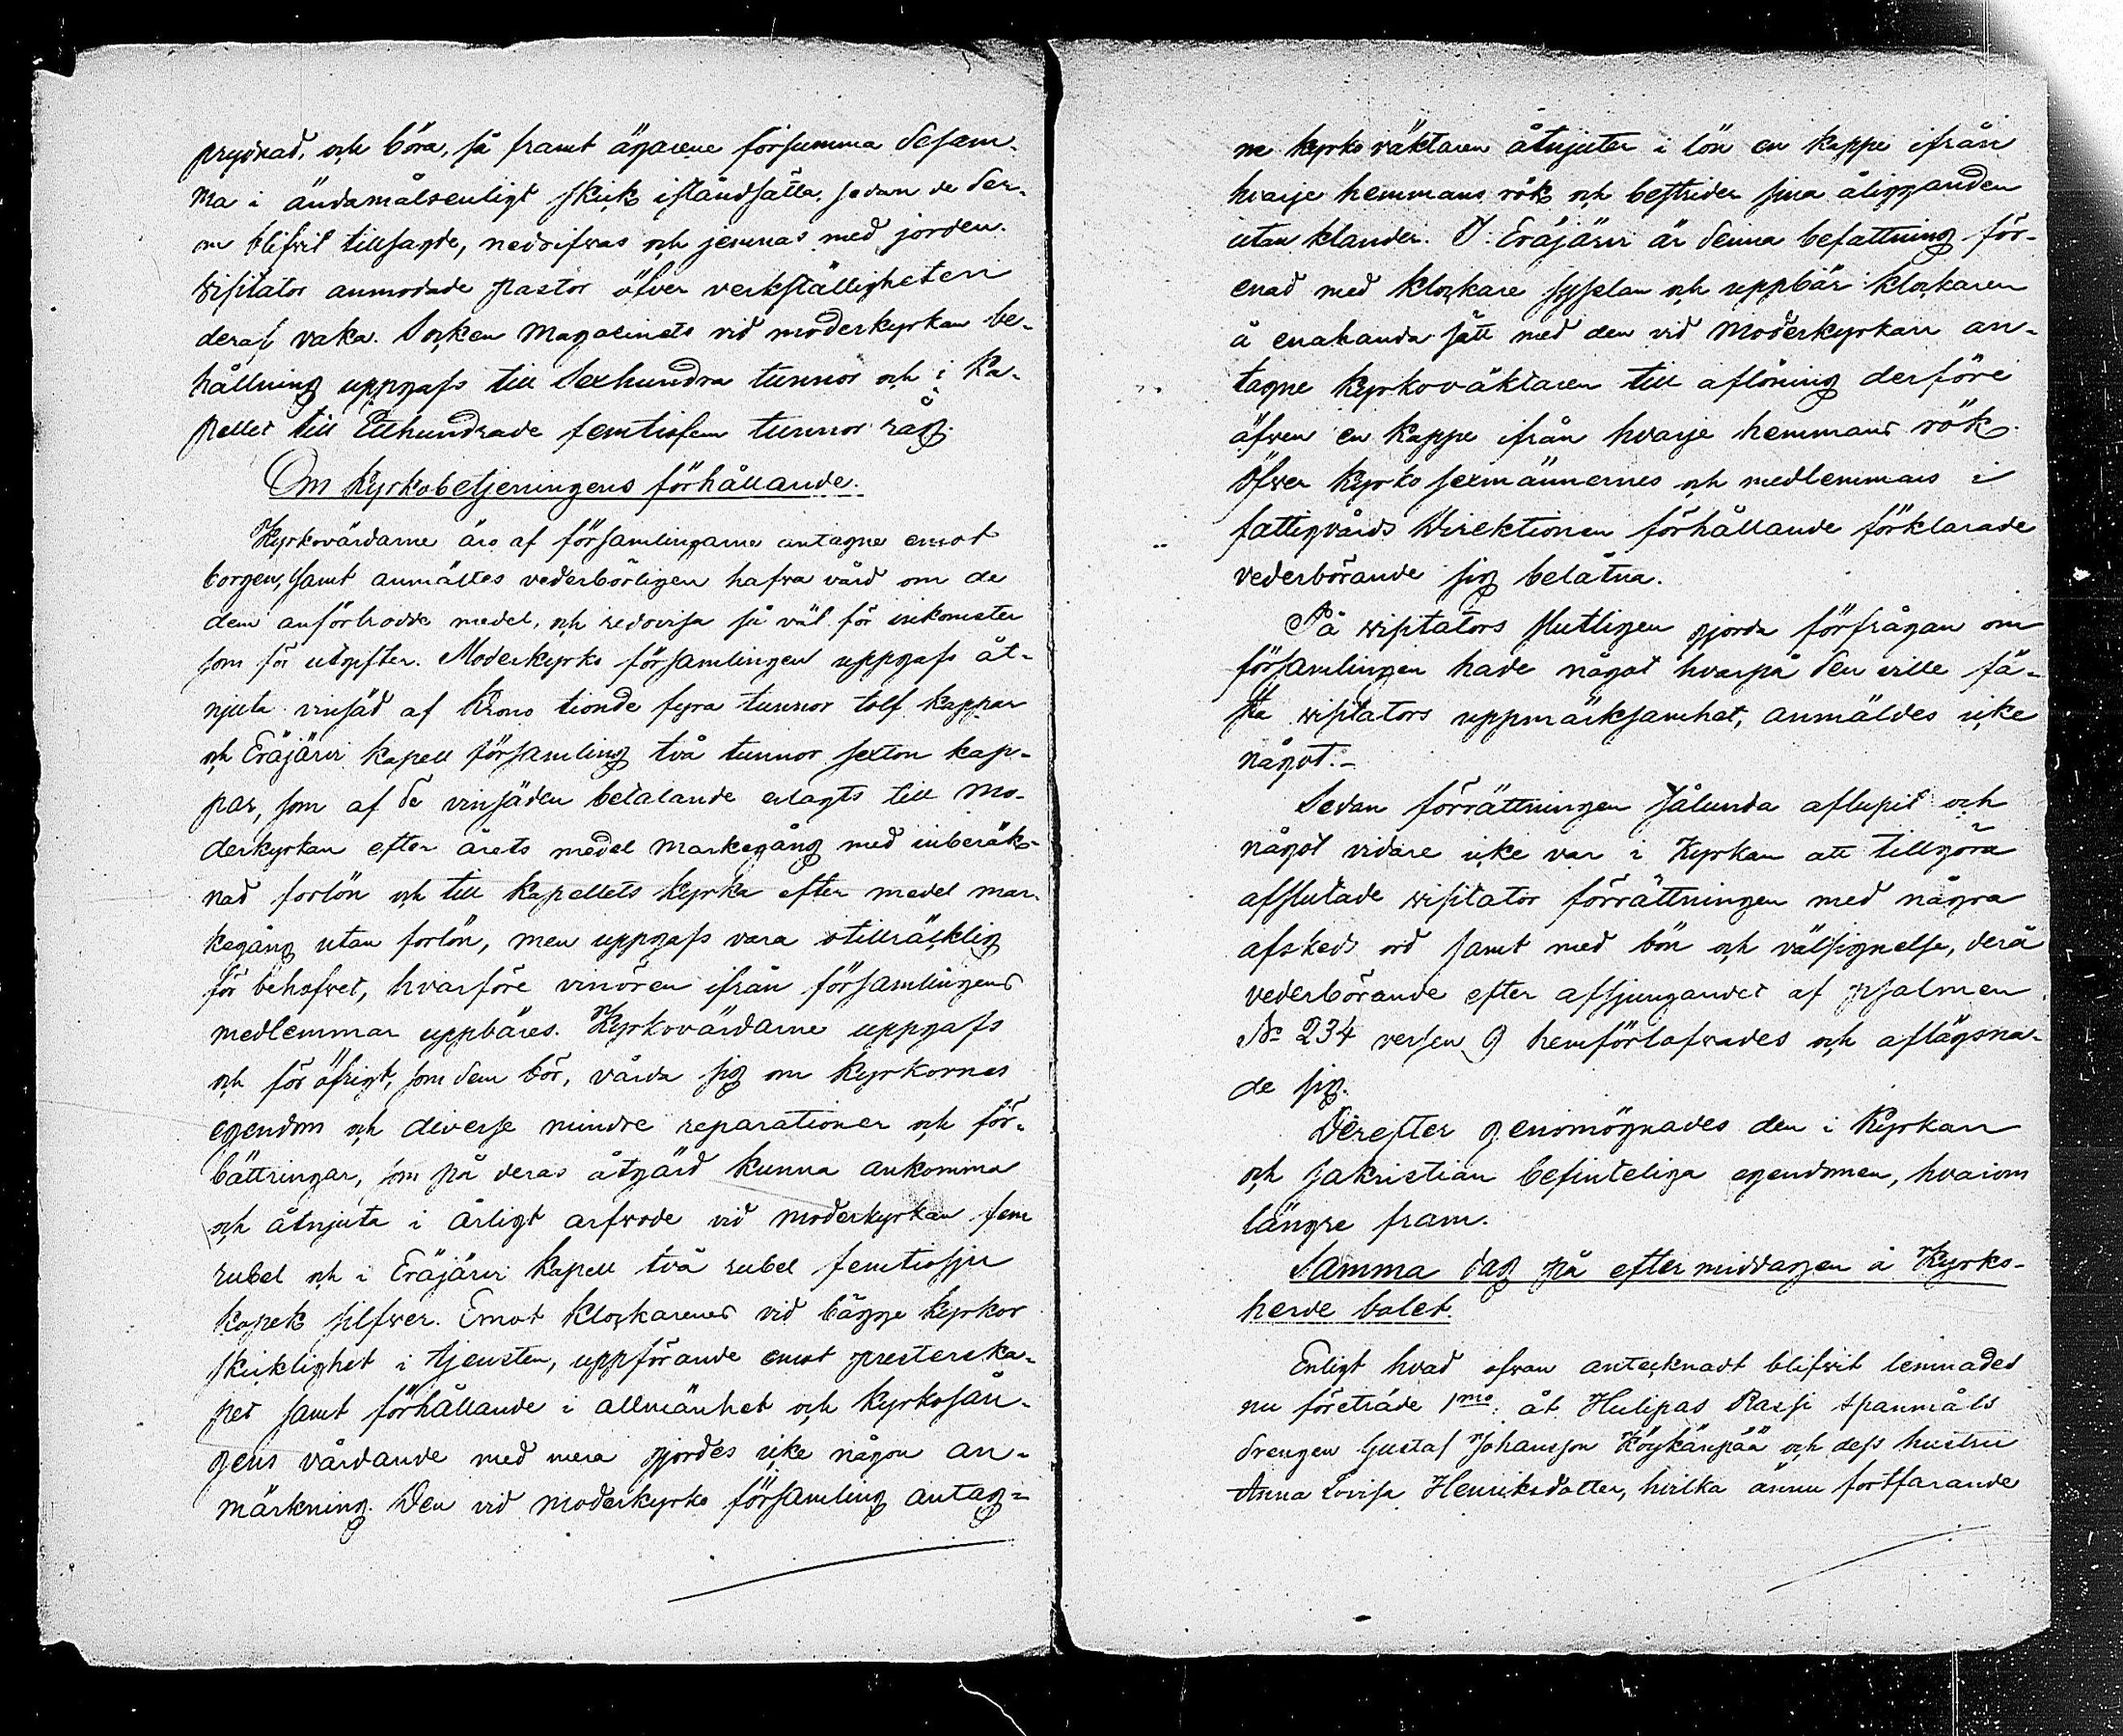 prydnad, och böra, så framt ägarene försumma desam-
ma i ändamålsenligt skick iståndsätta, sedan de der-
om blifvit tillsagde, nedrifvas och jemnas med jorden.
Visitator anmodade pastor öfver verkställigheten
deraf vaka. Socken Magasinets vid moderkyrkan be-
hållning uppgafs till Sexhundra tunnor och i Ka-
pellet till Etthundrade femtiofem tunnor råg.
Om Kyrkobetjeningens förhållande.
Kyrkovärdarne äro af församlingarne antagne emot
borgen, samt anmältes vederbörligen hafva vård om de
dem anförtrodde medel, och redovisa så väl för inkomster
som för utgifter. Moderkyrko församlingen uppgafs åt-
njuta vinsäd af Krono tionde fyra tunnor tolf kappar
och Eräjärvi kapell församling två tunnor sexton kap-
par, som af de vinsäden betalande erlagts till Mo-
derkyrkan efter årets medel markegång med inberäk-
nad forlön och till Kapellets Kyrka efter medel mar-
kegång utan forlön, men uppgafs vara otillräcklig
för behofvet, hvarföre vinören ifrån församlingens
medlemmar uppbäres. Kyrkovärdarne uppgafs
och för öfrigt, som dem bör, vårda sig om Kyrkornes
egendom och diverse mindre reparationer och för-
bättringar, som på deras åtgärd kunna ankomma
och åtnjuta i årligt arfvode vid moderkyrkan fem
rubel och i Eräjärvi Kapell två rubel femtiosju
kopek silfver. Emot Klockarenes vid bägge kyrkor
skicklighet i tjensten, uppförande emot presterska-
pet samt förhållande i allmänhet och Kyrkosån-
gens vårdande med mera gjordes icke någon an-
märkning. Den vid moderkyrko församling antag-
ne kyrkoväktaren åtnjuter i lön en kappe ifrån
hvarje hemmans rök och bestrider sina åligganden
utan klander. I Eräjärvi är denna befattning för-
enad med klockare sysslan och uppbär klockaren
å enahanda sätt med den vid Moderkyrkan an-
tagne Kyrkoväktaren till aflöning derföre
äfven en kappe ifrån hvarje hemmans rök.
Öfver Kyrko sexmännernes och medlemmars i
fattigvårds Direktionen förhållande förklarade
vederbörande sig belåtna.
På visitators slutligen gjorda förfrågan om
församlingen hade något hvarpå den ville fä-
sta visitators uppmärksamhet, anmäldes icke
något.-
Sedan förrättningen sålunda aflupit och
något vidare icke var i Kyrkan att tillgöra
afslutade visitator förrättningen med några
afskeds ord samt med bön och välsignelse, derå
vederbörande efter afsjungandet af psalmen
No 234 versen 9 hemförlofvades och aflägsna-
de sig.
Derefter genomögnades den i Kyrkan
och Sakristian befinteliga egendomen, hvarom
längre fram.
Samma dag på eftermiddagen å Kyrko-
herde bolet.
Enligt hvad ofvan antecknadt blifvit lemnades
nu företräde 1mo: åt Hulipas Rassi spanmåls
drengen Gustaf Johansson Köykänpää och dess hustru
Anna Lovisa Henriksdotter, hvilka ännu fortfarande